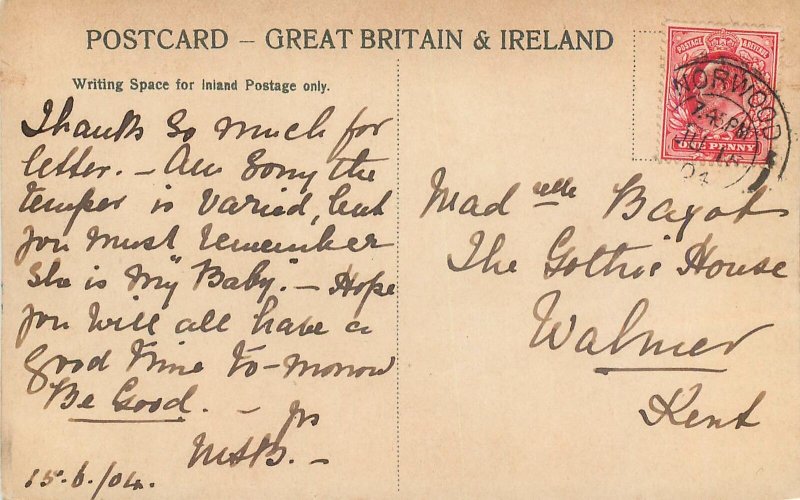 POSTCARD – GREAT BRITAIN & IRELAND
Writing Space for Inland Postage only.
Thanks so much for
letter. – Am Sorry the
temper is varied, but
you must remember
She is My "Baby". – Hope
you will all have a
good time to-morrow
Be Good. – Yrs
MSB. –
15.6/04.
POSTAGE REVENUE
ONE PENNY
NORWOOD
7.45 PM
JU 15
04
Mad elle Bagot
The Gothic House
Walmer
Kent